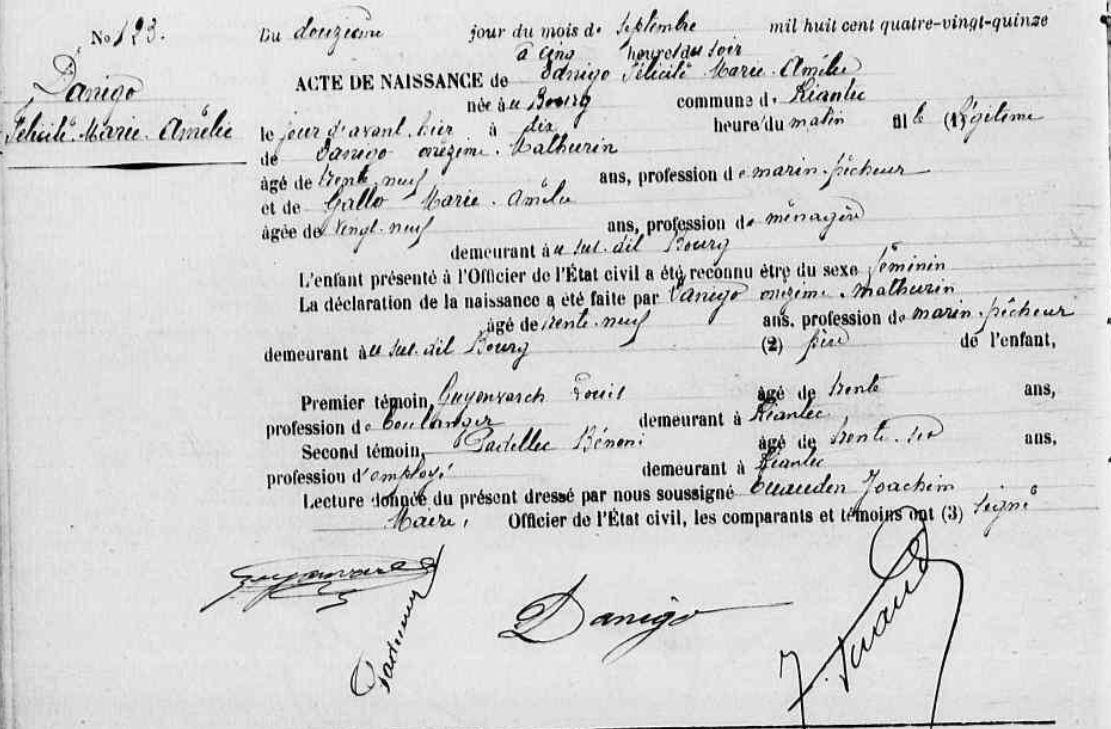 No 123.
Danigo
Félicité Marie Amélie
Du douzième jour du mois de Septembre mil huit cent quatre-vingt-quinze
à cinq heures du soir
ACTE DE NAISSANCE de Danigo Félicité Marie Amélie
née à u Bourg commune d. Riantec
le jour d'avant hier à dix heure du matin fille (1) légitime
de Danigo onézime Mathurin
âgé de trente neuf ans, profession de marin pêcheur
et de Gallo Marie Amélie
âgée de vingt neuf ans, profession de ménagère
demeurant à u sus dit Bourg
L'enfant présenté à l'Officier de l'État civil a été reconnu être du sexe féminin
La déclaration de la naissance a été faite par Danigo onézime mathurin
âgé de trente-neuf ans, profession de marin-pêcheur
demeurant à u sus dit Bourg (2) père de l'enfant,
Premier témoin, Guyonvarch Louis âgé de trente ans,
profession de boulanger demeurant à Riantec
Second témoin, Padellec Bénoni âgé de trente ans,
profession d'employé demeurant à Riantec
Lecture donnée du présent dressé par nous soussigné Joachim
Maire, Officier de l'État civil, les comparants et témoins ont (3) signé
Danigo